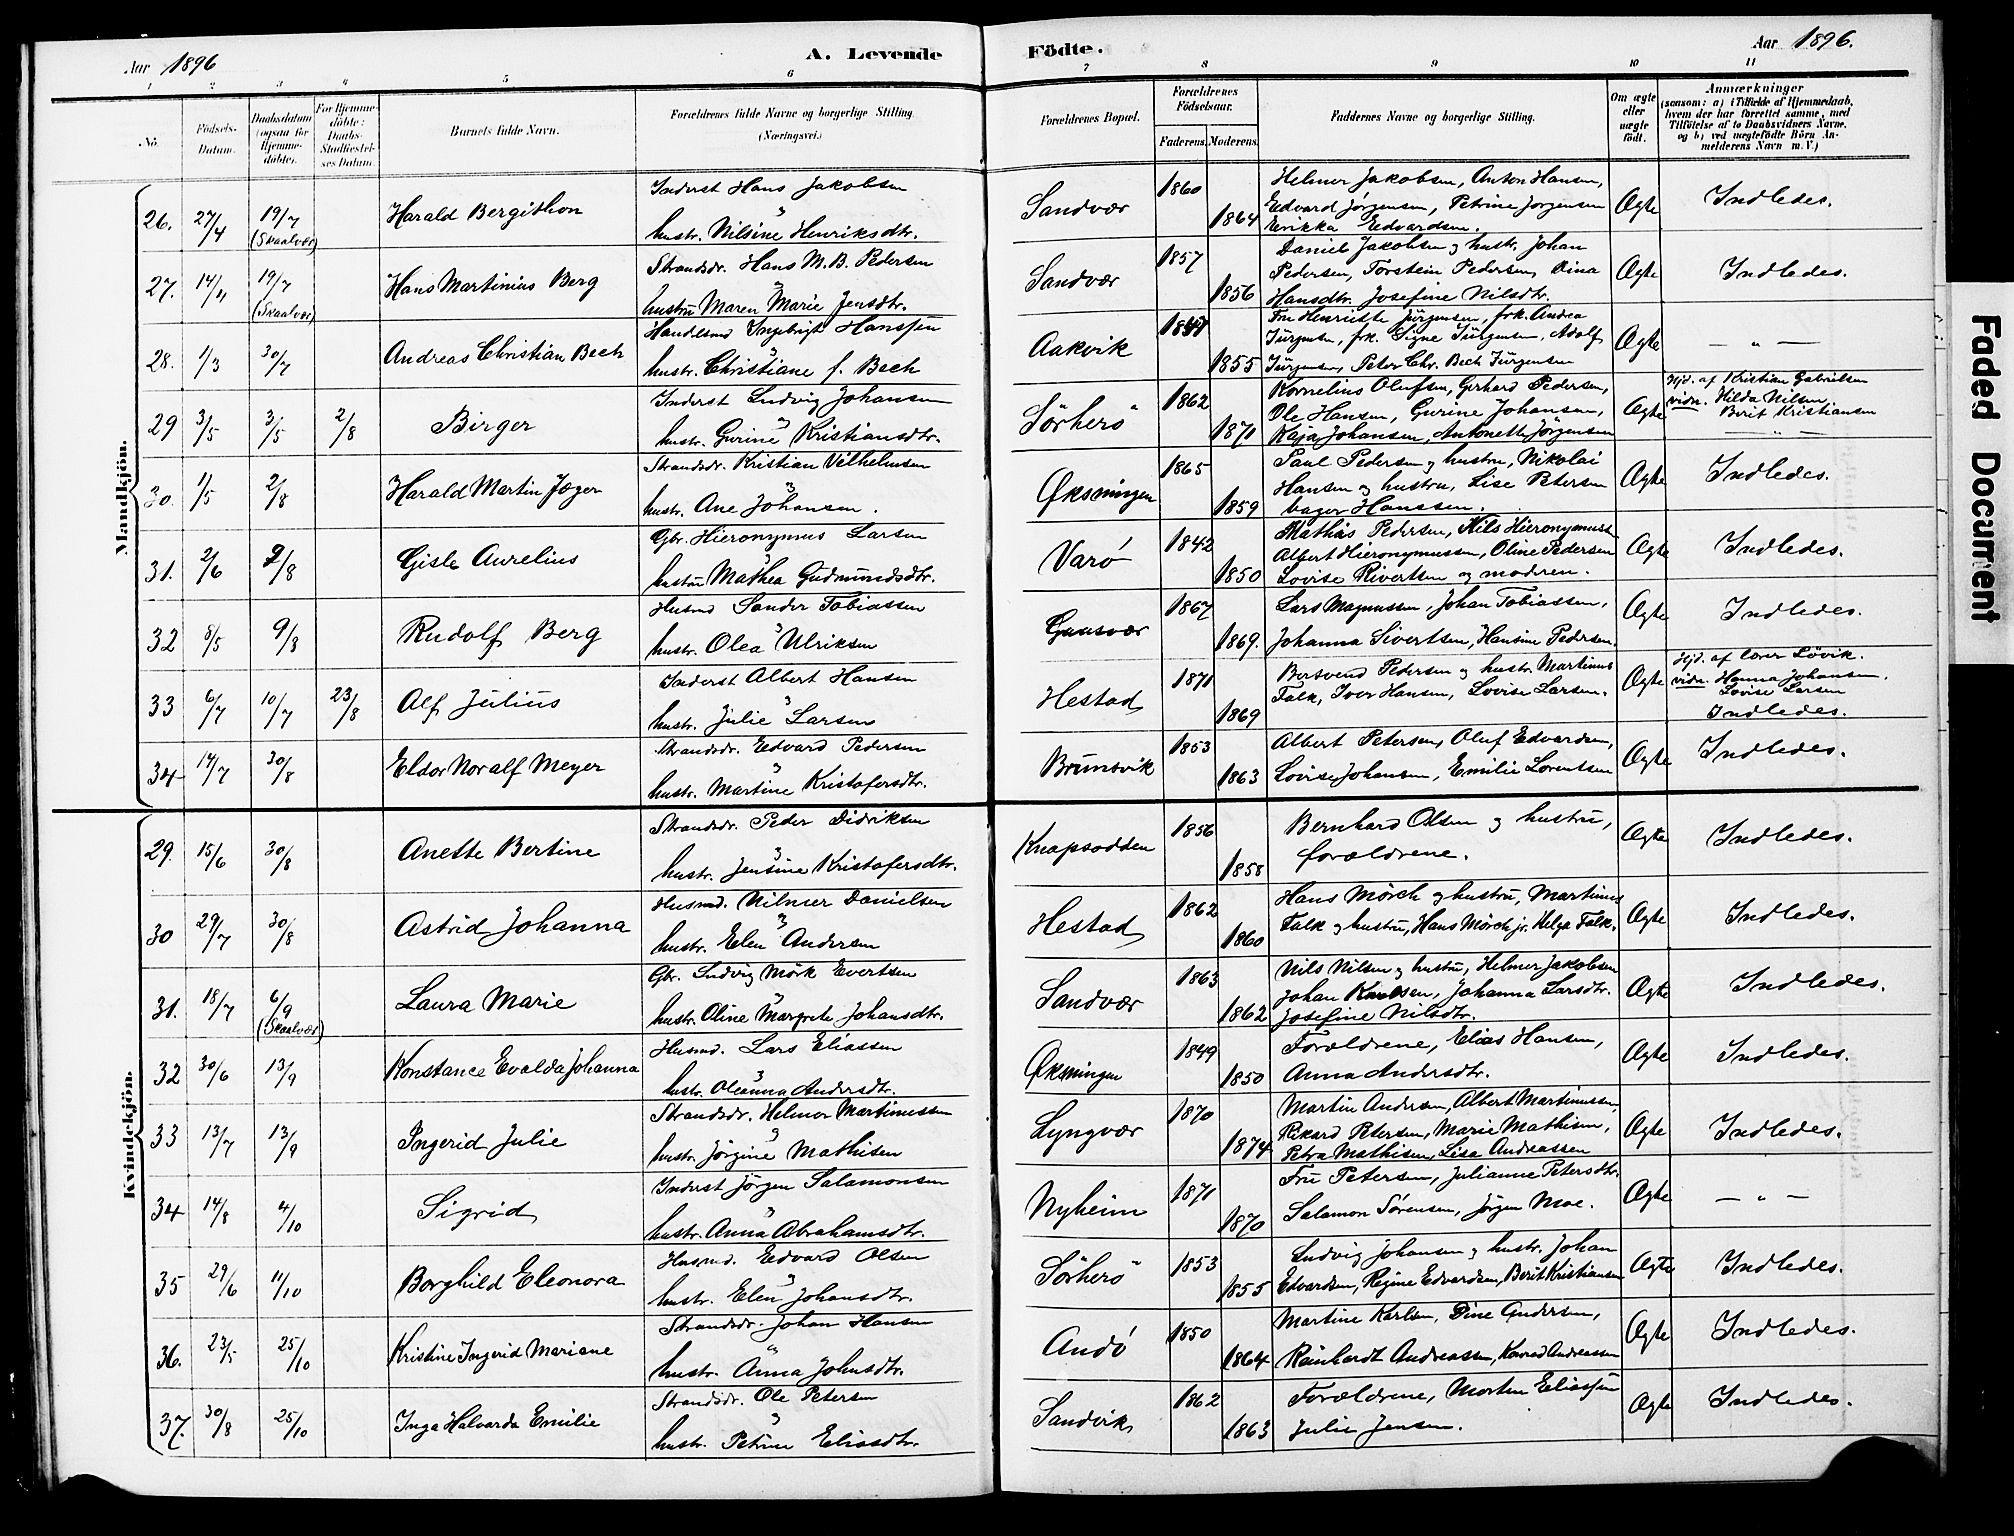 Aar 1896
A. Levende
Födte.
Aar 1896.
1 2 3 4 5 6 7 8 9 10 11
No. Födsels-Datum. Daabsdatum (ogsaa for Hjemmedöbte). For Hjemmedöbte: Daabs-Stadfæstelses Datum. Barnets fulde Navn. Forældrenes fulde Navne og borgerlige Stilling. (Næringsvei.) Forældrenes Bopæl. Forældrenes Födselsaar. Faderens. Moderens. Faddernes Navne og borgerlige Stilling. Om ægte eller uægte födt. Anmærkninger (saasom: a) i Tilfælde af Hjemmedaab, hvem der har forrettet samme, med Tilföielse af to Daabsvidners Navne, og b) ved uægtefödte Börn Anmelderens Navn m. V.)
Mandkjön.
26. 27/4 19/7 (Skaalvær) Harald Bergithon
Inderst Hans Jakobsen
hustr. Nilsine Henriksdtr.
Sandvær 1860 1864
Helmer Jakobsen, Anton Hansen,
Edvard Jörgensen, Petrine Jörgensen
Erikka Edvardsen.
Ægte Indledes.
27. 14/4 19/7 (Skaalvær) Hans Martinius Berg
Strandsdr. Hans M. B. Pedersen
hustru Maren Marie Jensdtr.
Sandvær 1857 1856
Daniel Jakobsen og hustr. Johan
Pedersen, Torstein Pedersen, Oina
Hansdtr. Josefine Nilsdtr.
Ægte Indledes.
28. 1/3 30/7 Andreas Christian Bech
Handelsmd Ingebrigt Hanssen
hustr. Christiane f. Bech
Aakvik 1855
Fru Henriette Jürgensen, frk. Andrea
Jürgensen, frk. Signe Jürgensen, Adolf
Jürgensen, Peter Chr. Bech Jürgensen
Ægte — " —
29 3/5 3/5 2/8 Birger
Inderst Ludvig Johansen
hustr. Gurine Kristiansdtr.
Sörherö 1862 1871
Kornelius Olufsen, Gerhard Pedersen,
Ole Hansen, Gurine Johansen,
Kaja Johansen, Antonette Jörgensen
Ægte
Hjd. af Kristian Gabrielsen
vidn. Hilda Nilsen,
Berit Kristiansen
— " —
30. 1/5 2/8 Harald Martin Jæger
Strandsdr. Kristian Vilhelmsen
hustr. Ane Johansen.
Øksningen 1865 1859
Paul Pedersen og hustru, Nikolai
Hansen og hustru, Lise Petersen
bager Hanssen.
Ægte Indledes.
31. 2/6 2/8 Gisle Aurelius
Gbr. Hieronymus Larsen
hustru Mathea Gudmundsdtr.
Varö 1842 1850
Mathias Pedersen, Nils Hieronymussen
Albert Hieronymussen, Oline Pedersen
Lovise Rivertsen og moderen.
Ægte Indledes.
32 8/5 9/8 Rudolf Berg
Husmd Sander Tobiassen
hustr. Olea Ulriksen
Gaasvær 1867 1869.
Lars Magnussen, Johan Tobiassen,
Johanna Sivertsen, Hansine Pedersen.
Ægte Indledes.
33 6/7 10/7 23/8 Alf Julius
Inderst Albert Hansen
hustr. Julie Larsen
Hestad 1871 1869
Bersvend Pedersen og hustr. Martinus
Falk, Iver Hansen, Lovise Larsen.
Ægte
Hjd. af lærer Lövik.
vidn. Hanna Johansen.
Lovise Larsen
Indledes.
34 14/7 30/8 Eldor Noralf Meyer
Strandsdr. Edvard Pedersen
hustr. Martine Kristofersdtr.
Brunsvik 1853 1863
Albert Petersen, Oluf Edvardsen,
Lovise Johansen, Emilie Lorentsen
Ægte Indledes.
Kvindekjön.
29. 15/6 30/8 Anette Bertine
Strandsdr. Peder Didriksen
hustr. Jensine Kristofersdtr.
Knapsodden 1856 1858
Bernhard Olsen og hustru,
forældrene.
Ægte Indledes.
30 29/7 30/8 Astrid Johanna
Husmd. Nilmer Danielsen
hustr. Elen Andersen
Hestad 1862 1860
Hans Mörch og hustru, Martinus
Falk og hustru, Hans Mörch jr. Helga Falk.
Ægte Indledes.
31. 18/7 6/9 (Skaalvær) Laura Marie
Gbr. Ludvig Mörk Evertsen
hustr. Oline Margrete Johansdtr.
Sandvær 1863 1862
Nils Nilsen og hustru, Helmer Jakobsen
Johan Knutsen, Johanna Larsdtr.
Josefine Nilsdtr.
Ægte Indledes.
32 30/6 13/9 Konstance Evalda Johanna
Husmd. Lars Eliassen
hustr. Oleanna Andersdtr.
Øksningen 1849 1850
Forældrene, Elias Hansen,
Anna Andersdtr.
Ægte Indledes.
33 13/7 13/9 Ingerid Julie
Strandsdr. Helmer Martinussen
hustr. Jörgine Mathisen
Lyngvær 1870 1874
Martin Andersen, Albert Martinussen,
Rikard Petersen, Marie Mathisen,
Petra Mathisen, Lise Andreassen
Ægte Indledes.
34 14/8 4/10 Sigrid
Inderst Jörgen Salamonsen
hustr. Anna Abrahamsdtr.
Nyheim 1871 1870
Fru Petersen, Julianne Petersdtr.
Salamon Sörensen, Jörgen Moe.
Ægte — " —
35 29/6 11/10 Borghild Eleonora
Husmd. Edvard Olsen
hustr. Elen Johansdtr.
Sörherö 1853 1855
Ludvig Johansen og hustr. Johan
Edvardsen, Regine Edvardsen, Berit Kristiansen
Ægte Indledes.
36. 23/5 25/10 Kristine Ingerid Mariane
Strandsdr. Johan Hansen
hustr. Anna Johnsdtr.
Andö 1850 1864
Martine Karlsen, Dine Andersen,
Reinhardt Andreassen, Konrad Andreassen
Ægte Indledes.
37. 30/8 25/10 Inga Halvarda Emilie
Strandsdr. Ole Petersen
hustr. Petrine Eliasdtr.
Sandvik 1862 1863
Forældrene, Morten Eliassen
Julie Jensen.
Ægte Indledes.
Faded Document